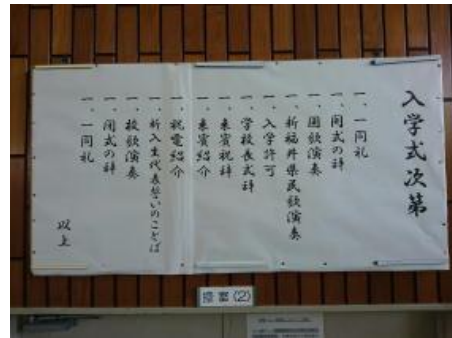 入学式次第
一、一同礼
一、開式の辞
一、国歌演奏
一、新福井県民歌演奏
一、入学許可
一、学校長式辞
一、来賓祝辞
一、来賓紹介
一、祝電紹介
一、新入生代表誓いのことば
一、校歌演奏
一、閉式の辞
一、一同礼
以上
控室(2)